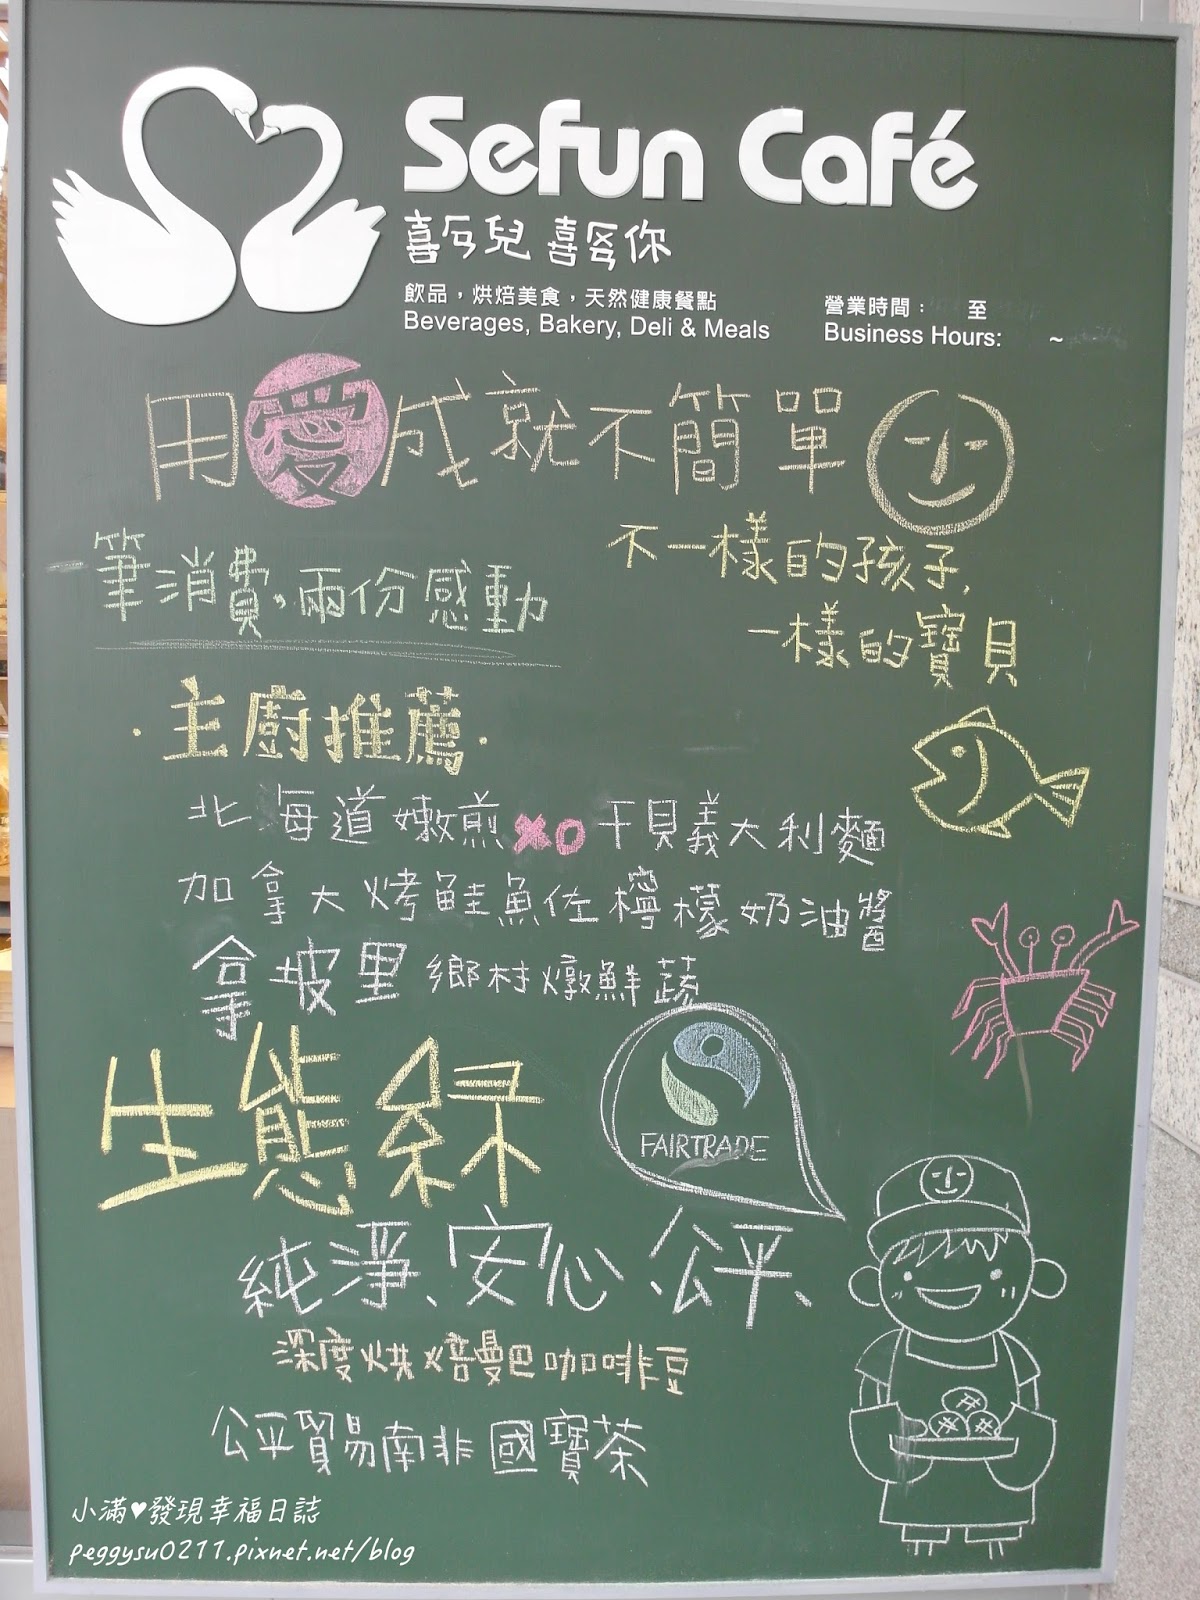 Sefun Café
喜ㄢ兒 喜ㄢ你
飲品，烘焙美食，天然健康餐點
Beverages, Bakery, Deli & Meals
營業時間：　至
Business Hours: ~
用愛成就不簡單
一筆消費，兩份感動
不一樣的孩子，
一樣的寶貝
·主廚推薦·
北海道嫩煎XO干貝義大利麵
加拿大烤鮭魚佐檸檬奶油醬
拿坡里鄉村燉鮮蔬
生態綠
FAIRTRADE
純淨、安心、公平、
深度烘焙曼巴咖啡豆
公平貿易南非國寶茶
小滿♥發現幸福日誌
peggysu0211.pixnet.net/blog